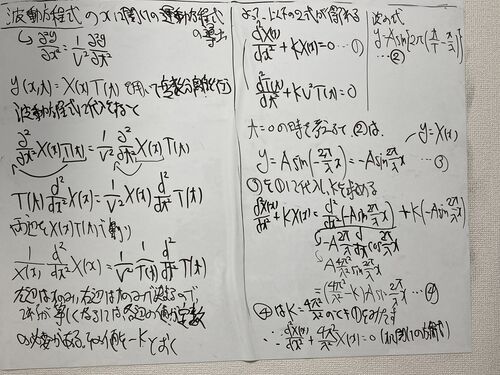 波動方程式のxに関しての運動方程式の導出
↳ ∂²y/∂x² = 1/V² ∂²y/∂t²
y(x,t) = X(x)T(t) を用いて変数分離を行う
波動方程式に代入すると
∂²/∂x² X(x)T(t) = 1/V² ∂²/∂t² X(x)T(t)
T(t) d²/dx² X(x) = 1/V² X(x) d²/dt² T(t)
両辺をX(x)T(t)で割り
1/X(x) d²/dx² X(x) = 1/V² 1/T(t) d²/dt² T(t)
左辺はxのみ、右辺はtのみで決まるので
が等しくなるには各辺の値が定数
の必要がある。その値を-Kとおく
よって、以下の2式が得られる
d²X(x)/dx² + KX(x) = 0 ... ①
d²T(t)/dt² + KV²T(t) = 0
波の式
y = A sin{2π(t/T - x/λ)}
... ②
t = 0の時を考えると②は、
y = X(x)
y = A sin(-2π/λ x) = -A sin 2π/λ x ... ③
③を①に代入し、Kを求める
d²X(x)/dx² + KX(x) = d²/dx² (-A sin 2π/λ x) + K(-A sin 2π/λ x)
↳ -A 2π/λ d/dx cos 2π/λ x
A 4π²/λ² sin 2π/λ x
= (4π²/λ² - K) A sin 2π/λ x ... ④
④はK = 4π²/λ² のとき①をみたす
∴ d²X(x)/dx² + 4π²/λ² X(x) = 0 (xに関しての方程式)